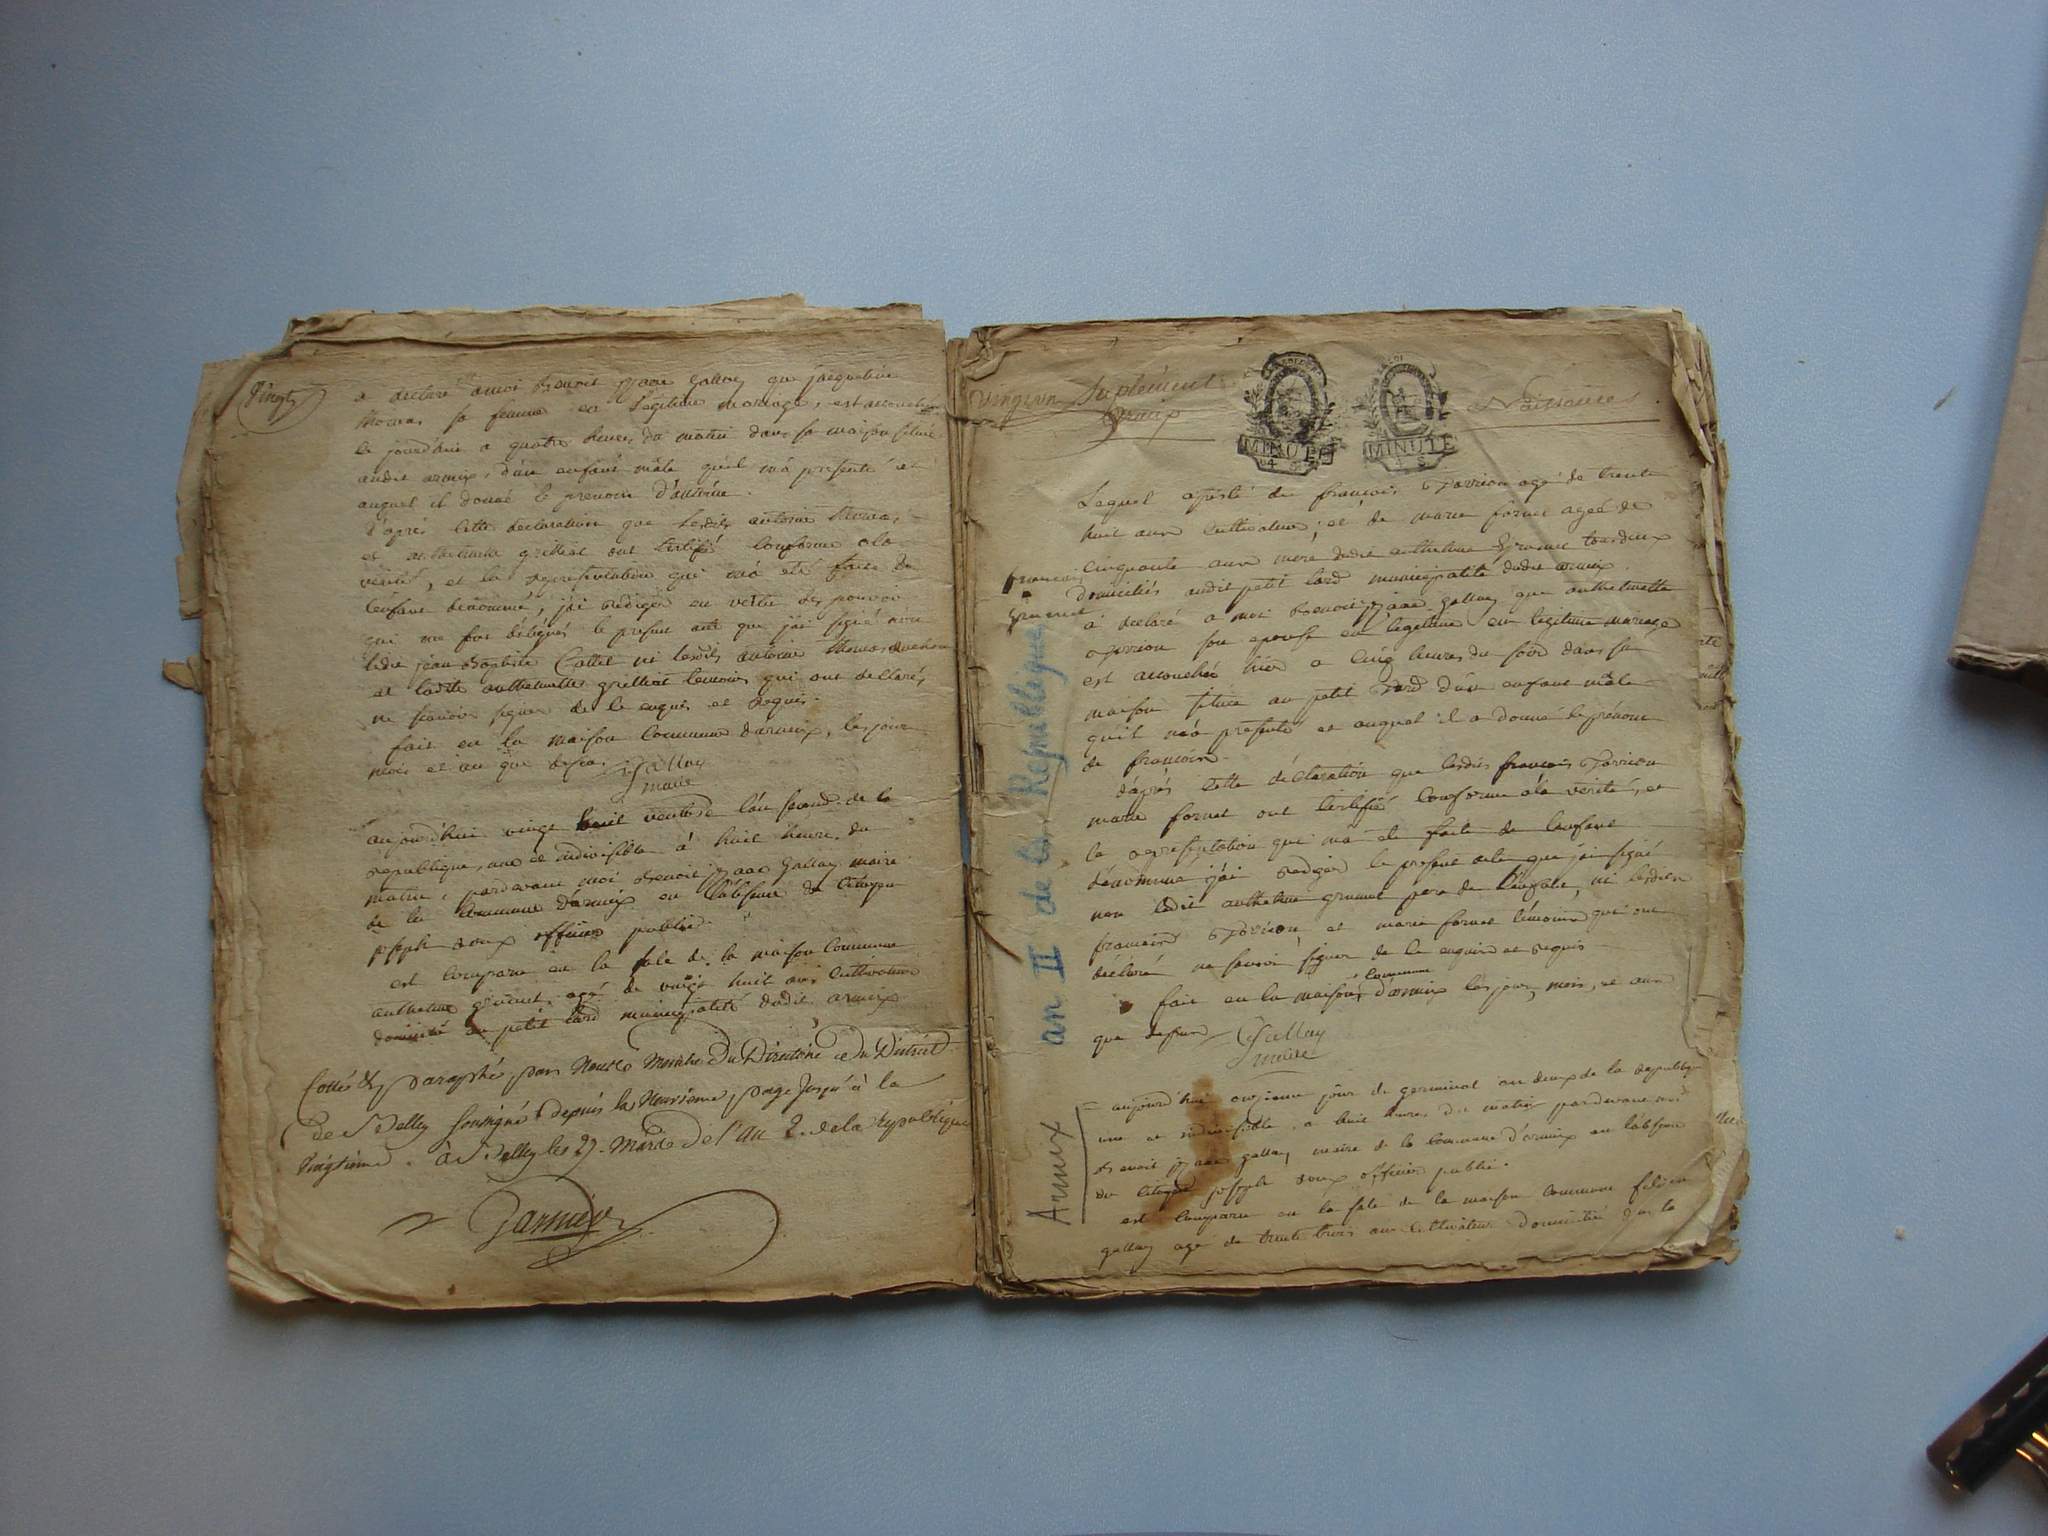 Vingt
a déclaré a moi Benoit Isaac Gallay que jacqueline
thomas sa femme en Légitime mariage, est accouchée
le jourd'hui a quatre heures du matin dans sa maison située
audit armix, d'un enfant mâle qu'il m'a présenté et
auquel il donné le prenom d'antoine.
d'après cette déclaration que lesdits antoine thomas
et anthelmette grilliat ont certifié conforme a la
vérité, et la représentation qui m'a eté faite de
l'enfant dénommé, j'ai rédigée en vertu des pouvoir
qui me sont délégués le présent acte que j'ai signé non
ledit jean Baptiste Cattet ni lesdits antoine thomas
et ladite anthelmette grilliat temoins qui ont déclarés
ne scavoir signer de ce enquis et requis.
fait en la maison Commune darmix, les jour
mois et an que dessus Gallay
maire
aujourd'hui vingt huit ventose l'an second de la
republique, une et indivisible à huit heures du
matin, pardevant moi Benoit Isaac Gallay maire
de la Commune Darmix en l'absence du Citoyen
joseph Roux officier public.
est comparu en la sale de la maison Commune
anthelme grumet agé de vingt huit ans Cultivateur
domicilié au petit Lard municipalité dudit armix
Cotté & paraphé par Nous Membre Du Directoire du District
de Belley soussigné depuis la Neuvieme page jusqu'à la
Vingtième. à Belley les 29. Mars de l'An 2. de la Republique
Garnier
Vingt un Suplement Naissances
armix
MINUTE MINUTE
Lequel assisté de françois agé de trente
huit ans Cultivateur, et de marie fornet ageé de
Cinquante ans mere dudit anthelme Grumet tous deux
francois domiciliés audit petit Lard municipalité dudit armix
Grumet a déclaré a moi Benoit Isaac Gallay que anthelmette
son epouse en legitime en légitime mariage
est accouchée hier a Cinq heures du soir dans sa
maison située au petit Lard d'un enfant mâle
qu'il m'a présenté et auquel il a donné le prénom
de françois.
d'après cette déclaration que lesdits françois
marie fornet ont Certifié Conforme à la verité, et
la représentation qui m'a eté faite de l'enfant
dénommé j'ai rédigé le présent acte que j'ai signé
non ledit anthelme grumet pere de l'enfant, ni lesdits
françois et marie fornet témoins qui ont
déclaré ne savoir signer de ce enquis et requis
Commune
fait en la maison d'armix les jour, mois, et an
que dessus Gallay
maire
aujourd'hui onzieme jour de germinal an deux de la republique
une et indivisible a huit heures du matin pardevant moi
Benoit Isaac gallay maire de la Commune d'armix en l'absence
du Citoyen joseph Roux officier public.
est Comparu en la sale de la maison Commune
gallay agé de trente trois ans Cultivateur domicilié dans la
Armix an II de la République